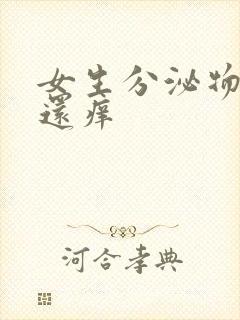 女生分泌物
還痒
河合孝典